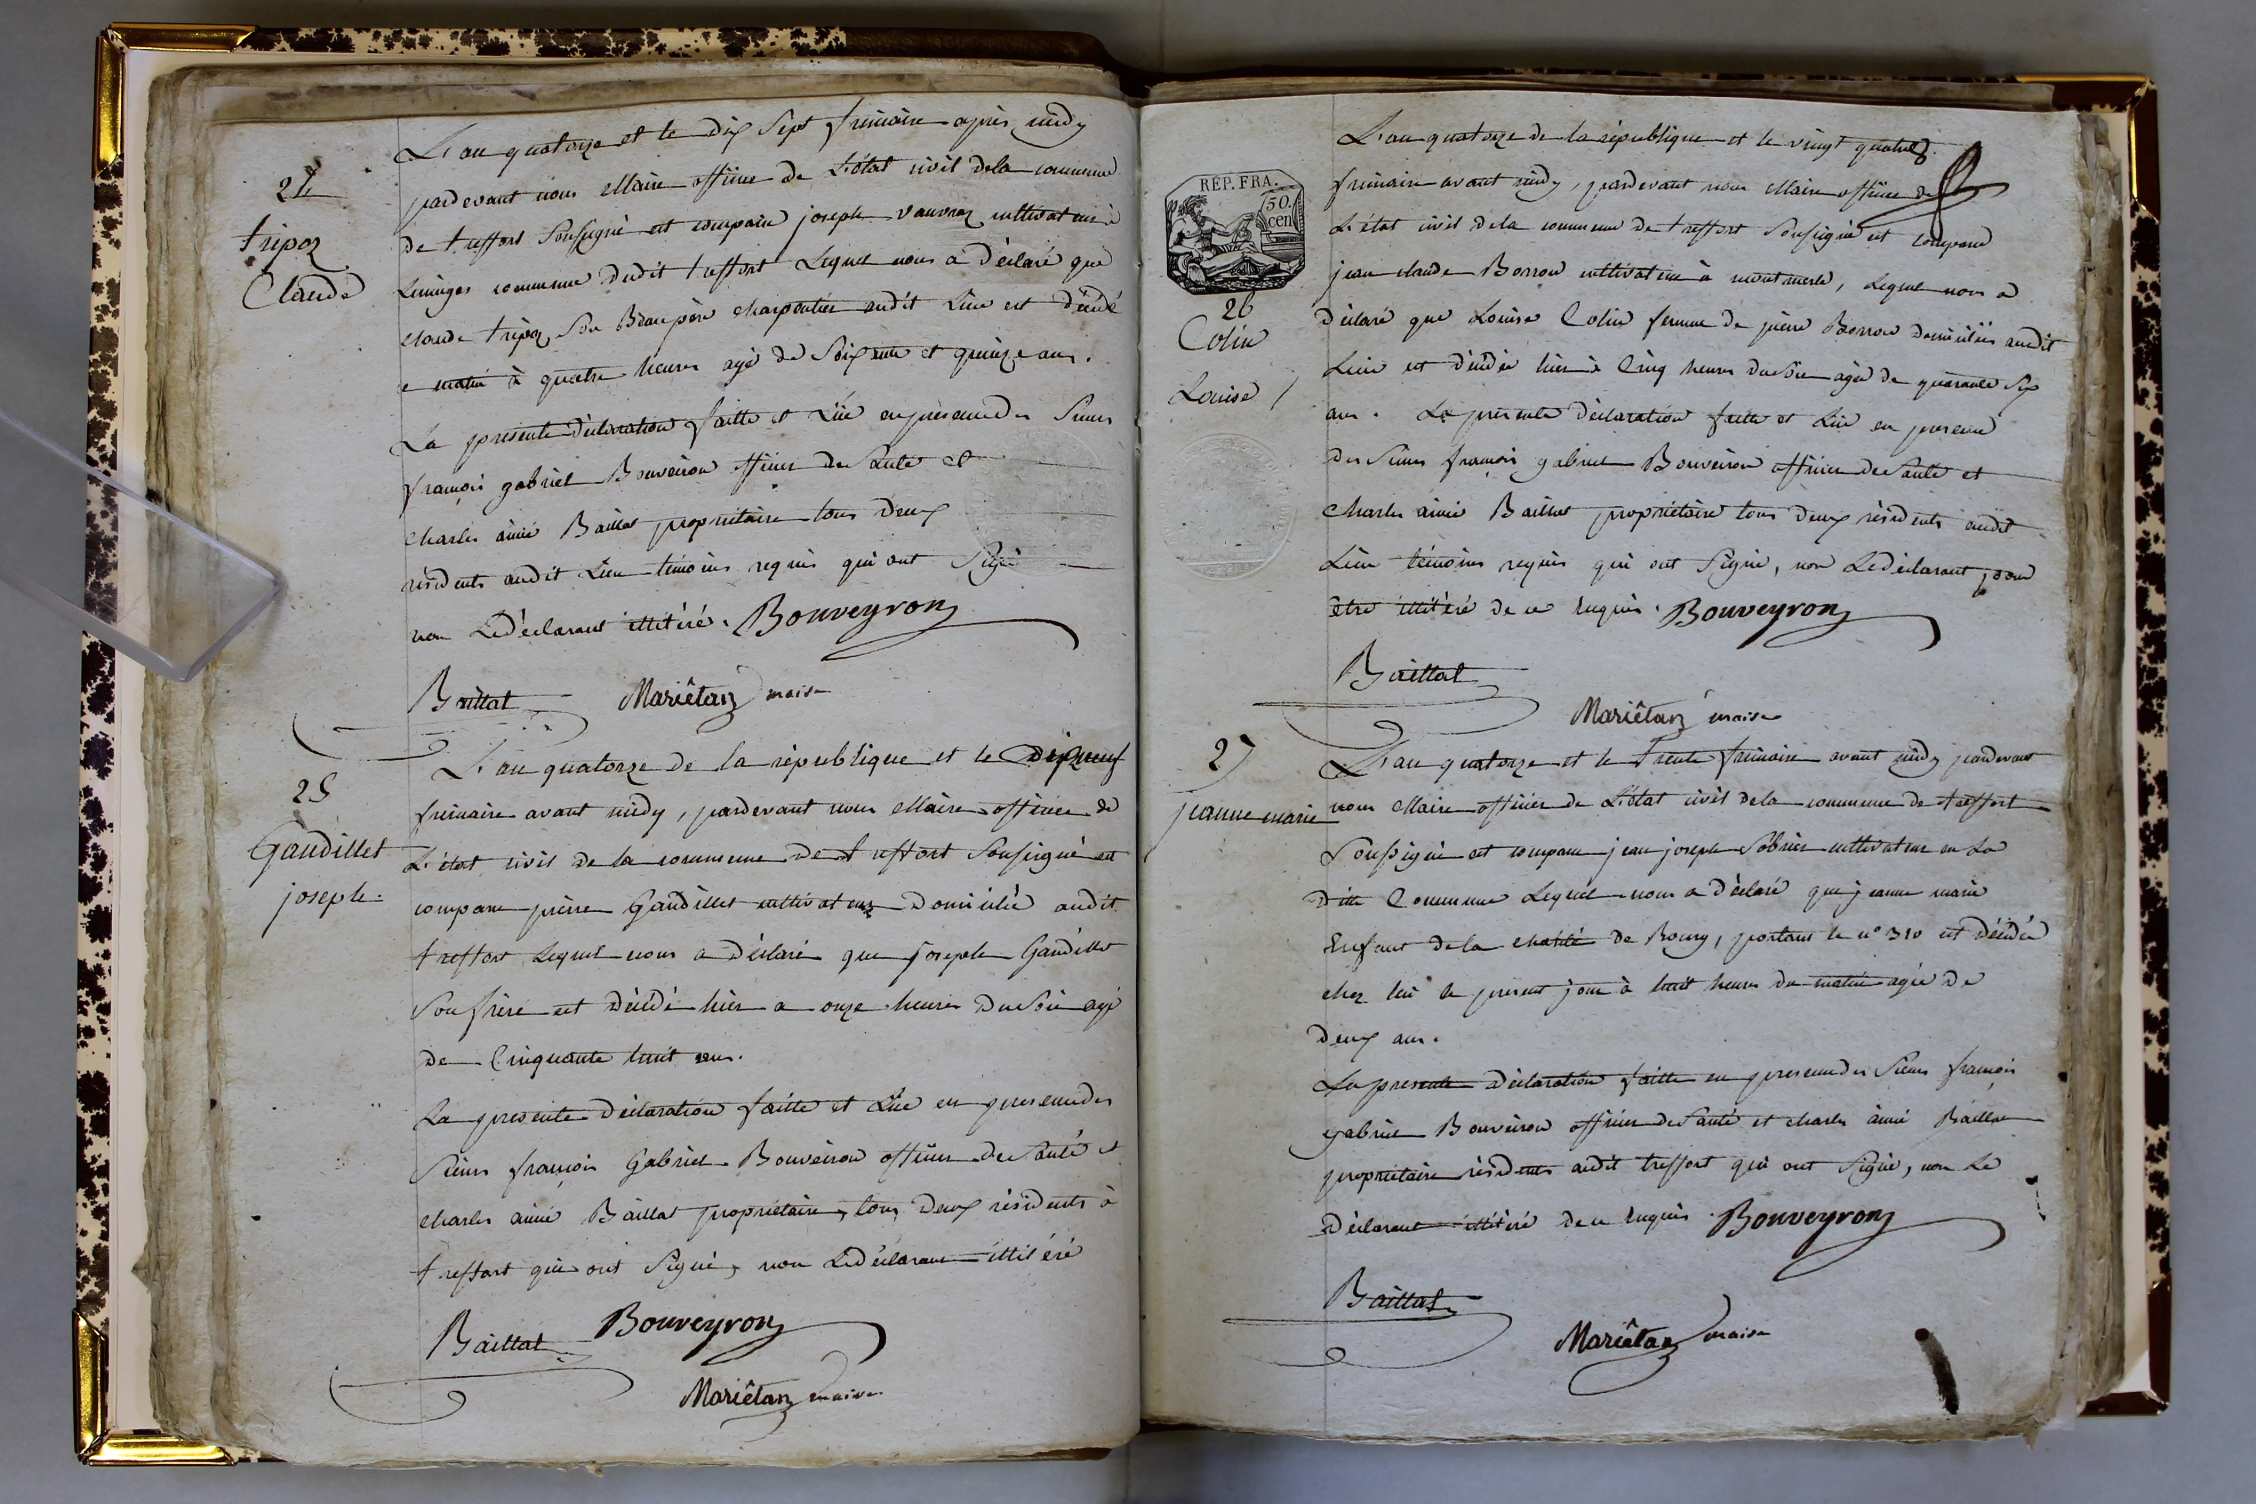 L'an quatorze et le dix Sept frimaire après midy
24
pardevant nous Maire officier de L'état civil dela commune
tripoz
de treffort Soussigné est comparu joseph vauvray cultivateur à
Claude
Lucinges commune dudit treffort Lequel nous a déclaré que
claude tripoz Son Beaupère charpentier audit Lieu est décédé
ce matin à quatre heures agé de Soixante et quinze ans.
La présente déclaration faitte et Lüe en présence des Sieurs
françois gabriel Bouveiron officier de Santé et
charles aimé Baillat propriétaire tous deux
résidents audit Lieu témoins requis qui ont Signé
non Le Déclarant illitéré. Bouveyron
Baillat Mariêtan maire
L'an quatorze de la république et le dix neuf
25
frimaire avant midy, pardevant nous Maire officier de
Gaudillet
L'état civil de la commune de treffort Soussigné est
joseph.
comparu pierre Gaudillet cultivateur Domicilié audit
treffort Lequel nous a déclaré que joseph Gaudillet
Son frère est décédé hier a onze heures Du Soir agé
de Cinquante huit ans.
La présente déclaration faitte et Lüe en présence des
Sieurs françois Gabriel Bouveiron officier de Santé et
charles aimé Baillat propriétaire, tous deux résidents à
treffort qui ont Signé, non Le déclarant illitéré
Baillat Bouveyron
Mariêtan maire
L'an quatorze de la république et le vingt quatre
RÉP. FRA.
50.
cen
frimaire avant midy, pardevant nous Maire officier de
L'état civil dela commune de treffort Soussigné est comparu
jean claude Borron cultivateur à montmerle, Lequel nous a
26
déclaré que Louise Colin femme de pierre Borron domiciliés audit
Colin
Lieu est décédée hier à Cinq heures du Soir agée de quarante Six
Louise
ans. La présente déclaration faitte et Lüe en présence
des Sieurs françois gabriel Bouveiron officier de Santé et
charles aimé Baillat propriétaire tous deux résidents audit
Lieu témoins requis qui ont Signé, non Le déclarant pour
être illitéré de ce Enquis. Bouveyron
Baillat
Mariêtan maire
27
L'an quatorze et le trente frimaire avant midy pardevant
jeanne marie
nous Maire officier de L'état civil dela commune de treffort
Soussigné est comparu jean joseph Sobrier cultivateur en La
ditte Commune Lequel nous a déclaré que jeanne marie
Enfant de la charité de Bourg, portant le n° 310 est décédée
chez lui le présent jour à huit heures du matin agée de
deux ans.
La présente déclaration faitte en présence des Sieurs françois
gabriel Bouveiron officier de Santé et charles aimé Baillat
propriétaire résidents audit treffort qui ont Signé, non Le
Déclarant illitéré de ce Enquis. Bouveyron
Baillat
Mariêtan maire